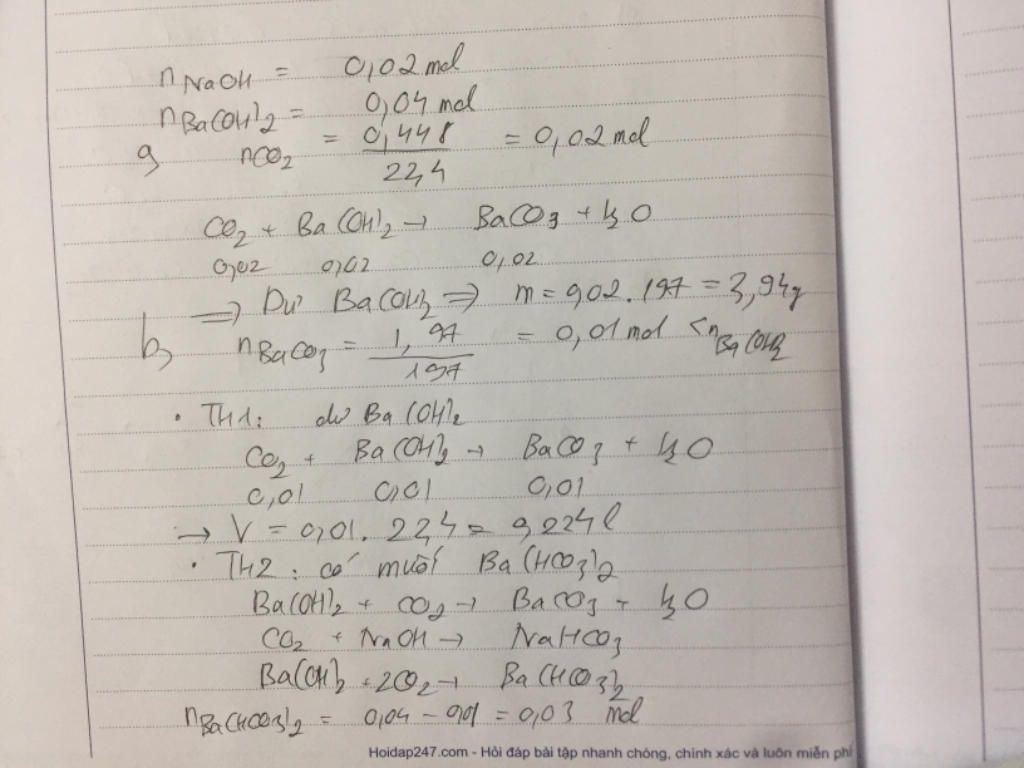 nNaOH = 0,02 mol
nBa(OH)2 = 0,04 mol
a, nCO2 = 0,448/22,4 = 0,02 mol
CO2 + Ba(OH)2 → BaCO3 + H2O
0,02 0,02 0,02
⇒ Dư Ba(OH)2 ⇒ m = 0,02.197 = 3,94g
b, nBaCO3 = 1,97/197 = 0,01 mol < nBa(OH)2
• TH1: dư Ba(OH)2
CO2 + Ba(OH)2 → BaCO3 + H2O
0,01 0,01 0,01
→ V = 0,01.22,4 = 0,224l
• TH2: có muối Ba(HCO3)2
Ba(OH)2 + CO2 → BaCO3 + H2O
CO2 + NaOH → NaHCO3
Ba(OH)2 + 2CO2 → Ba(HCO3)2
nBa(HCO3)2 = 0,04 - 0,01 = 0,03 mol
Hoidap247.com - Hỏi đáp bài tập nhanh chóng, chính xác và luôn miễn phí